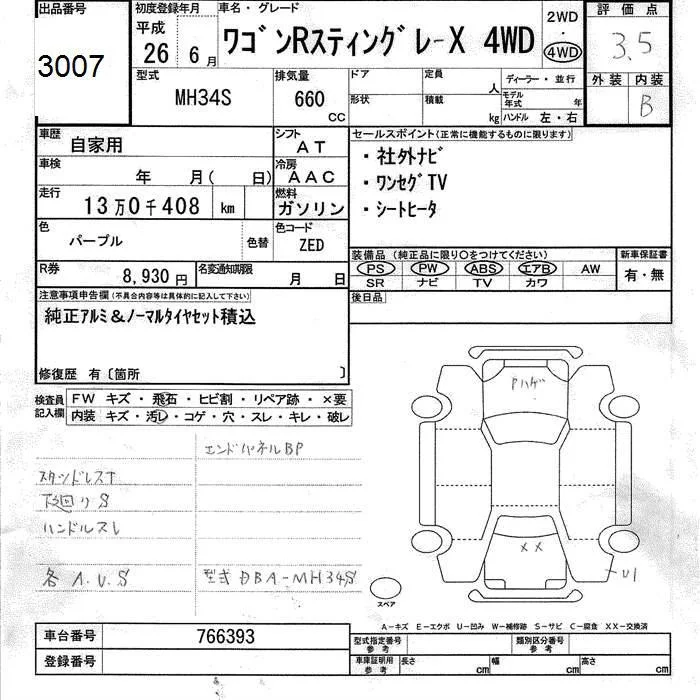 出品番号 初度登録年月 車名・グレード 2WD 評価点
3007 平成 26 年 6 月 ワゴンRスティングレ-X 4WD 4WD 3.5
型式 排気量 ドア 定員 人 ディーラー・並行 外装 内装
MH34S 660 CC 形状 積載 kg モデル年式 年 B
ハンドル 左・右
車歴 自家用 シフト AT セールスポイント(正常に機能するものに限ります)
車検 年 月( 日) 冷房 AAC ・社外ナビ
走行 13万0千408 km 燃料 ガソリン ・ワンセグTV
・シートヒータ
色 パープル 色替 色コード ZED
装備品(純正品に限り○をつけてください) 新車保証書
R券 8,930円 名変通知期限 月 日 PS PW ABS エアB AW 有・無
SR ナビ TV カワ
注意事項申告欄(不具合内容等は具体的に記入して下さい) 後日品
純正アルミ&ノーマルタイヤセット積込
修復歴 有〔箇所 〕
検査員記入欄 FW キズ・飛石・ヒビ割・リペア跡・×要
内装 キズ・汚レ・コゲ・穴・スレ・キレ・破レ
Pハゲ
エンドパネルBP
スタッドレス↑
下廻りS
ハンドルスレ
XX
各A.U.S 型式DBA-MH34S
U1
スペア
A-キズ E-エクボ U-凹み W-補修跡 S-サビ C-腐食 XX-交換済
車台番号 766393 型式指定番号 参考 類別区分番号 参考
登録番号 車庫証明用 参考 長さ cm 幅 cm 高さ cm